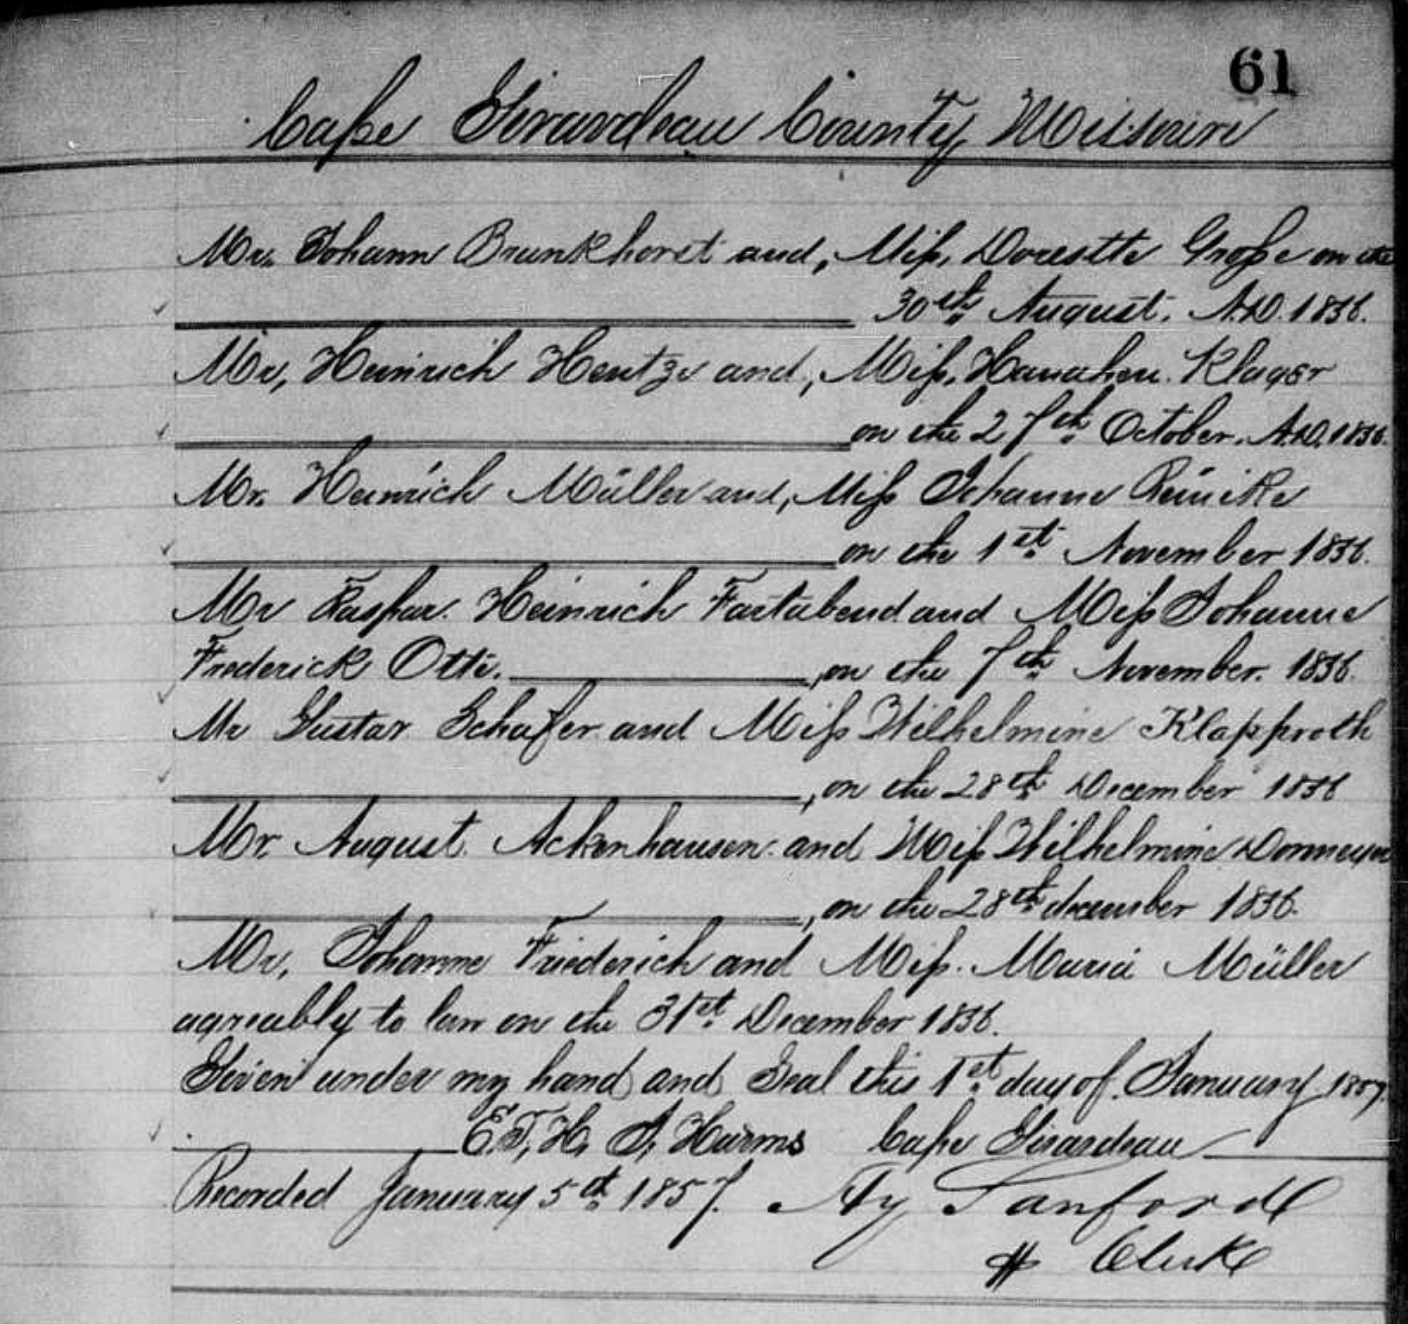 61
Cape Girardeau County, Missouri
Mr. Johann Brunkhorst and, Miss, Dorestte Große on the
30th August. A.D. 1856.
Mr, Heinrich Hentze and, Miss, Hanahen. Klager
on the 27th October. A.D. 1856.
Mr. Heinrich Müller and, Miss Johanne Reinike
on the 1st November 1856.
Mr Kaspar. Heinrich Fartabend and Miss Johanne
Frederick Otte. , on the 7th November. 1856.
Mr Gustav Schafer and Miss Wilhelmine Klapproth
, on the 28th December 1856
Mr. August. Ackenhausen. and Miss Wilhelmine Dormeyer
, on the 28th december 1856.
Mr, Johanne Friederich and Miss. Maria Müller
agreably to law on the 31st December 1856.
Given under my hand and Seal this 1st day of. January 1857.
E.T.H. J, Harms Cape Girardeau
Recorded January 5th 1857. Hy Sanford
Clerk